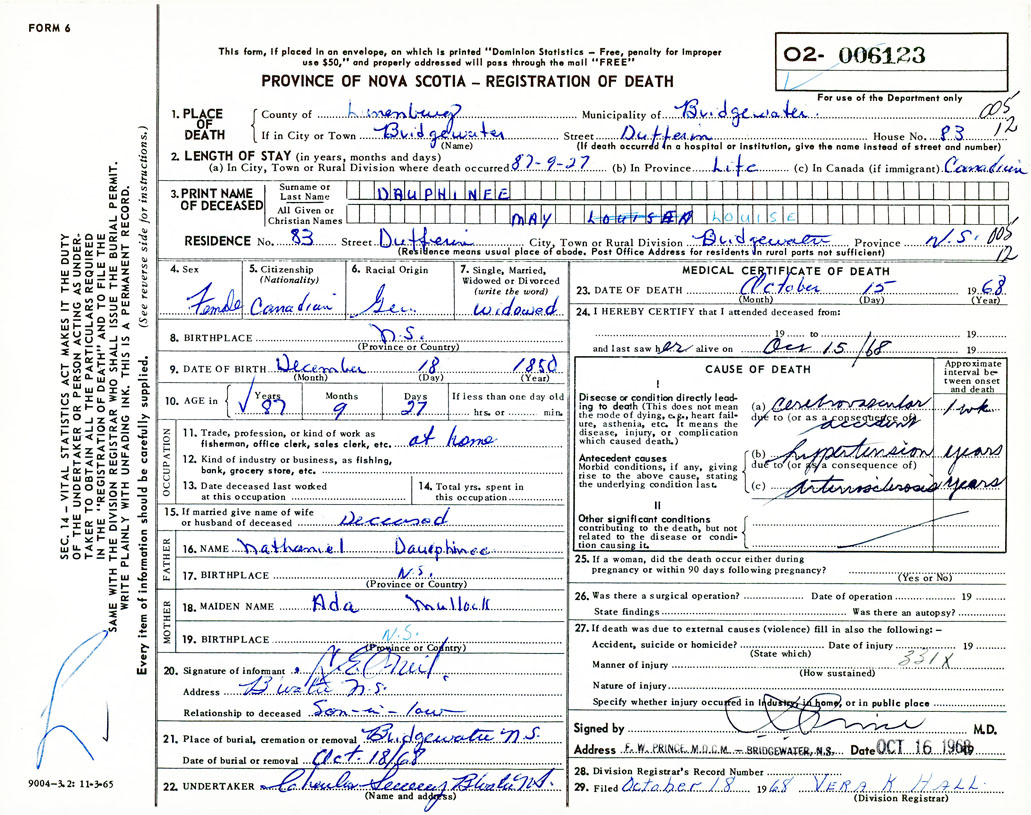 FORM 6
This form, if placed in an envelope, on which is printed "Dominion Statistics – Free, penalty for improper
use $50," and properly addressed will pass through the mail "FREE"
PROVINCE OF NOVA SCOTIA – REGISTRATION OF DEATH
O2- 006123
For use of the Department only
005
12
1. PLACE OF DEATH County of Lunenburg Municipality of Bridgewater
If in City or Town Bridgewater Street Dufferin House No. 83
(Name) (If death occurred in a hospital or institution, give the name instead of street and number)
2. LENGTH OF STAY (in years, months and days)
(a) In City, Town or Rural Division where death occurred 87-9-27 (b) In Province Life (c) In Canada (if immigrant) Canadian
3. PRINT NAME OF DECEASED Surname or Last Name DAUPHINEE
All Given or Christian Names MAY LOUISE
RESIDENCE No. 83 Street Dufferin City, Town or Rural Division Bridgewater Province N.S. 005
(Residence means usual place of abode. Post Office Address for residents in rural parts not sufficient) 12
4. Sex Female
5. Citizenship (Nationality) Canadian
6. Racial Origin Ger.
7. Single, Married, Widowed or Divorced (write the word) Widowed
8. BIRTHPLACE N.S.
(Province or Country)
9. DATE OF BIRTH December 18 1880
(Month) (Day) (Year)
10. AGE in Years 87 Months 9 Days 27 If less than one day old hrs. or min.
OCCUPATION
11. Trade, profession, or kind of work as fisherman, office clerk, sales clerk, etc. at home
12. Kind of industry or business, as fishing, bank, grocery store, etc.
13. Date deceased last worked at this occupation
14. Total yrs. spent in this occupation
15. If married give name of wife or husband of deceased Deceased
FATHER
16. NAME Nathaniel Dauphinee
17. BIRTHPLACE N.S.
(Province or Country)
MOTHER
18. MAIDEN NAME Ada Mullock
19. BIRTHPLACE N.S.
(Province or Country)
20. Signature of informant
Address B'water N.S.
Relationship to deceased Son-in-law
21. Place of burial, cremation or removal Bridgewater N.S.
Date of burial or removal Oct. 18/68
22. UNDERTAKER
(Name and address)
MEDICAL CERTIFICATE OF DEATH
23. DATE OF DEATH October 15 1968
(Month) (Day) (Year)
24. I HEREBY CERTIFY that I attended deceased from:
19 to 19
and last saw her alive on Oct 15/68 19
CAUSE OF DEATH
Approximate interval between onset and death
I
Disease or condition directly leading to death (This does not mean the mode of dying, e.g., heart failure, asthenia, etc. It means the disease, injury, or complication which caused death.)
(a) cerebrovascular accident 1 wk
due to (or as a consequence of)
Antecedent causes
Morbid conditions, if any, giving rise to the above cause, stating the underlying condition last.
(b) hypertension years
due to (or as a consequence of)
(c) arteriosclerosis years
II
Other significant conditions
contributing to the death, but not related to the disease or condition causing it.
25. If a woman, did the death occur either during
pregnancy or within 90 days following pregnancy?
(Yes or No)
26. Was there a surgical operation? Date of operation 19
State findings Was there an autopsy?
27. If death was due to external causes (violence) fill in also the following: –
Accident, suicide or homicide? Date of injury 19
(State which) 331X
Manner of injury
(How sustained)
Nature of injury
Specify whether injury occurred in Industry, in home, or in public place
Signed by Prince M.D.
Address F. W. PRINCE, M.D.C.M. – BRIDGEWATER, N.S. Date OCT 16 1968
28. Division Registrar's Record Number
29. Filed October 18 1968 VERA K HALL
(Division Registrar)
SEC. 14 – VITAL STATISTICS ACT MAKES IT THE DUTY
OF THE UNDERTAKER OR PERSON ACTING AS UNDER-
TAKER TO OBTAIN ALL THE PARTICULARS REQUIRED
IN THE "REGISTRATION OF DEATH" AND TO FILE THE
SAME WITH THE DIVISION REGISTRAR WHO SHALL ISSUE THE BURIAL PERMIT.
WRITE PLAINLY WITH UNFADING INK. THIS IS A PERMANENT RECORD.
Every item of information should be carefully supplied. (See reverse side for instructions.)
9004-3.2: 11-3-65